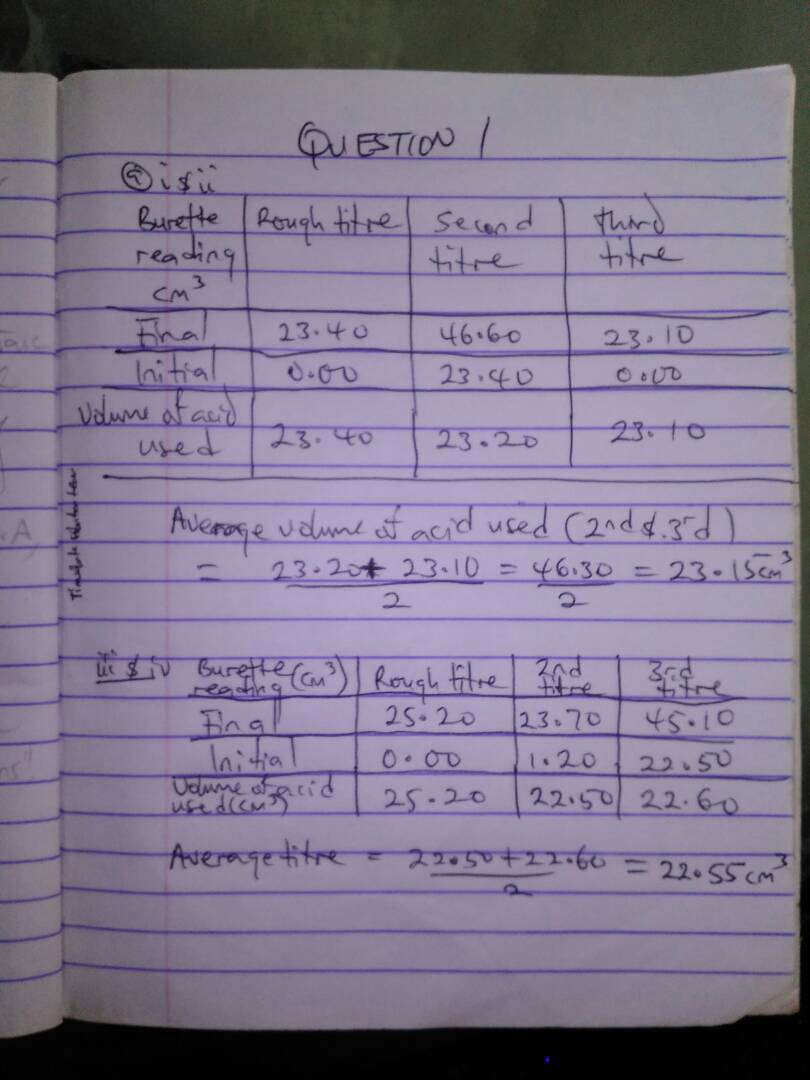 QUESTION 1
(a) i & ii
Burette reading cm³ | Rough titre | Second titre | third titre
Final | 23.40 | 46.60 | 23.10
Initial | 0.00 | 23.40 | 0.00
Volume of acid used | 23.40 | 23.20 | 23.10
Average volume of acid used (2nd & 3rd)
= 23.20 + 23.10 / 2 = 46.30 / 2 = 23.15cm³
iii & iv
Burette reading (cm³) | Rough titre | 2nd titre | 3rd titre
Final | 25.20 | 23.70 | 45.10
Initial | 0.00 | 1.20 | 22.50
Volume of acid used (cm³) | 25.20 | 22.50 | 22.60
Average titre = 22.50 + 22.60 / 2 = 22.55cm³